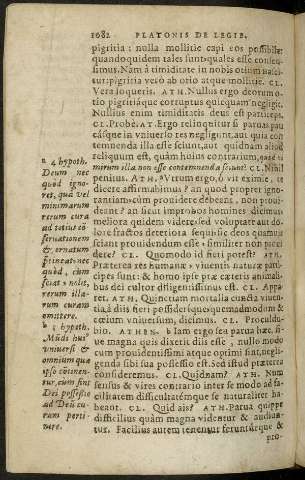 1082 PLATONIS DE LEGIB.
pigritia: nulla mollitie capi eos possibile:
quandoquidem tales sunt quales esse consen-
simus. Nam à timiditate in nobis otium nasci-
tur: pigritia verò ab otio atque mollitie. CL.
Vera loqueris. ATH. Nullus ergo deorum o-
tio pigritiáque corruptus quicquam negligit.
Nullius enim timiditatis deus est particeps.
CL. Probè. AT. Ergo relinquitur si parua pau
cásque in vniuerso res negligunt, aut quia con
temnenda illa esse sciunt, aut quidnam aliud
reliquum est, quàm huius contrarium,
mirum illa non esse contemnenda CL. Nihil
penitus. ATH. Vtrum ergo, ô vir eximie, te
dicere affirmabimus? an quod propter igno-
rantiam, cùm prouidere debeant, non proui-
deant? an sicut improbos homines dicimus
meliora quidem videre, sed voluptate aut do-
lore fractos deteriora sequi: sic deos quamuis
sciant prouidendum esse, similiter non proui
dere? CL. Quomodo id fieri potest? ATH.
Præterea res humanæ viuentis naturæ parti-
cipes sunt: & homo ipse præ cæteris animali-
bus dei cultor diligentissimus est. CL. Appa-
ret. ATH. Quinetiam mortalia cuncta viuen-
tia à diis fieri possiderique quemadmodum &
cœlum vniuersum, dicimus. CL. Proculdu-
bio. ATHEN. b Iam ergo seu parua hæc, si-
ue magna quis dixerit diis esse, nullo modo
cum prouidentissimi atque optimi sint, negli-
genda sibi sua possessio est. Sed istud præterea
consideremus. CL. Quidnam? ATH. Num
sensus & vires contrario inter se modo ad fa-
cilitatem difficultatémque se naturaliter ha-
beant. CL. Quid ais? ATH. Parua quippe
difficilius quàm magna videntur & audiun-
tur. Facilius autem tenentur feruntúrque &
pro-
a 4 hypoth.
Deum nec
quod igno-
ret, quâ vel
minimarum
rerum cura
ad totius cō-
seruationem
& ornatum
pertineat: nec
quòd, cùm
sciat, nolit,
rerum illa-
rum curam
omittere.
b 5 hypoth.
Mūdi huiꝰ
vniuersi &
omnium quæ
ipso cōtinen-
tur, cùm sint
Dei possessio
ad Deū cu-
ram perti-
nere.